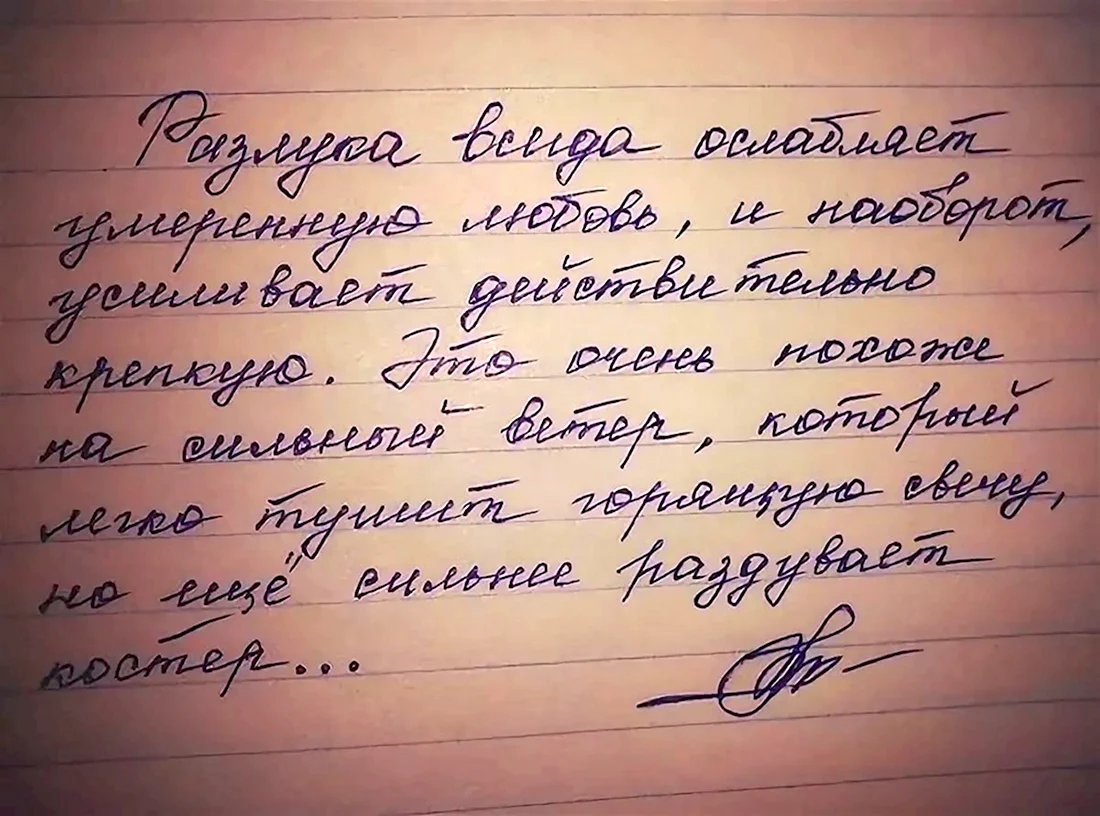 Разлука всегда ослабляет
умеренную любовь, и наоборот,
усиливает действительно
крепкую. Это очень похоже
на сильный ветер, который
легко тушит горящую свечу,
но ещё сильнее раздувает
костер...